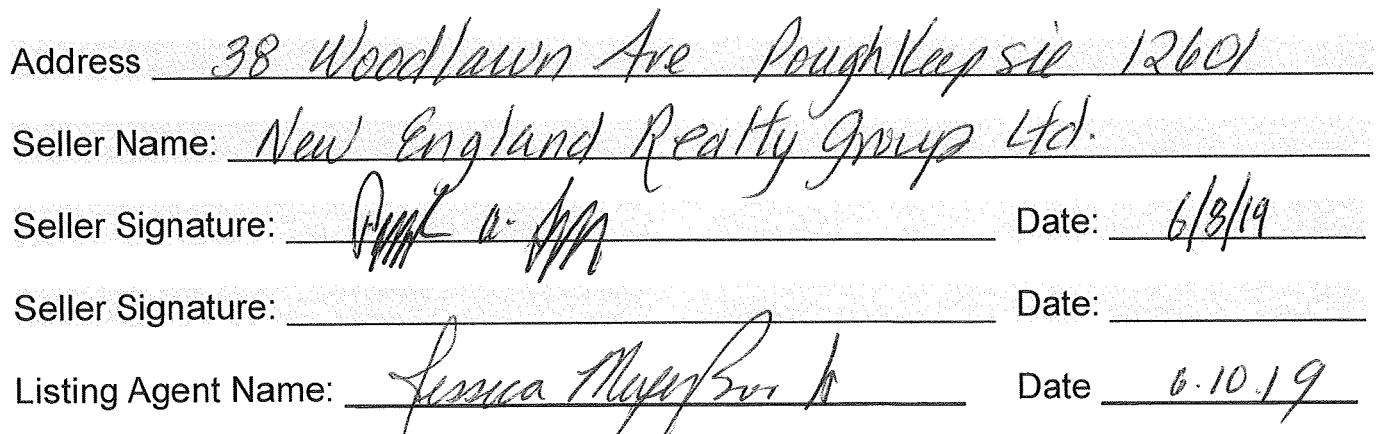 Address 38 Woodlawn Ave Poughkeepsie 12601
Seller Name: New England Realty Group Ltd.
Seller Signature: Date: 6/8/19
Seller Signature: Date:
Listing Agent Name: Jessica Date 6.10.19